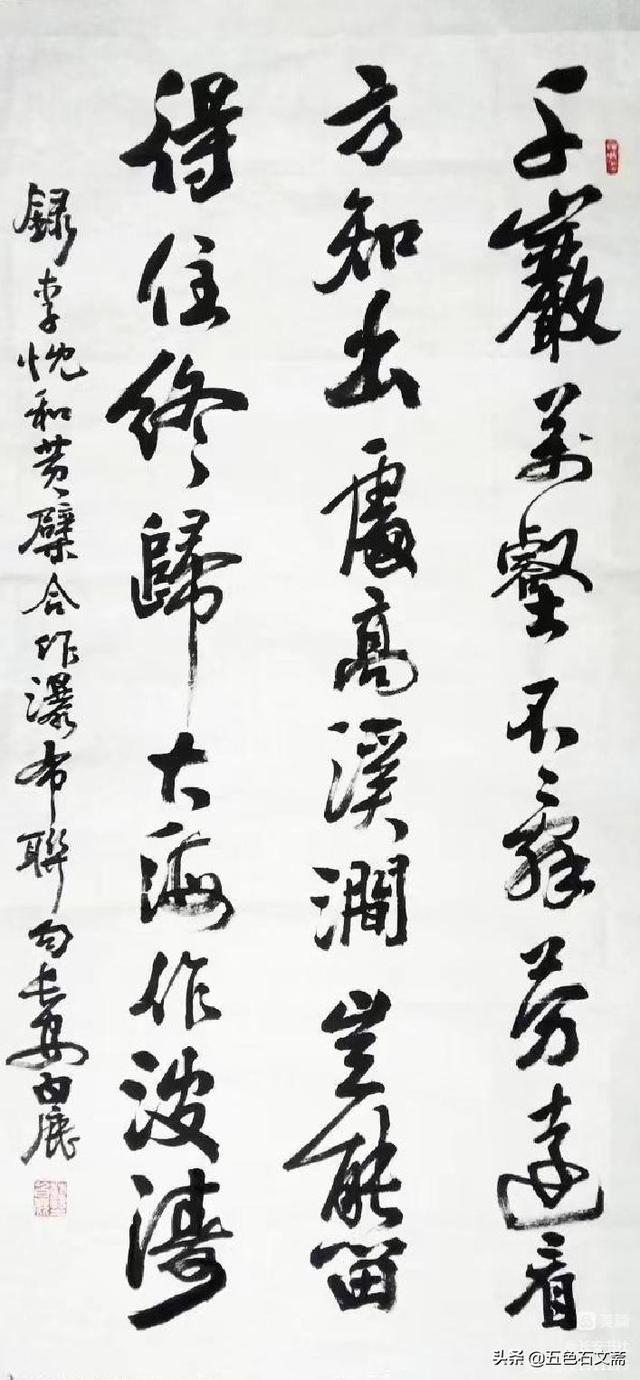 千巖萬壑不辭勞遠看
方知出處高溪澗豈能留
得住終歸大海作波濤
錄李忱和黄檗合作瀑布聯句長安白鹿
美篇
头条 @五色石文斋